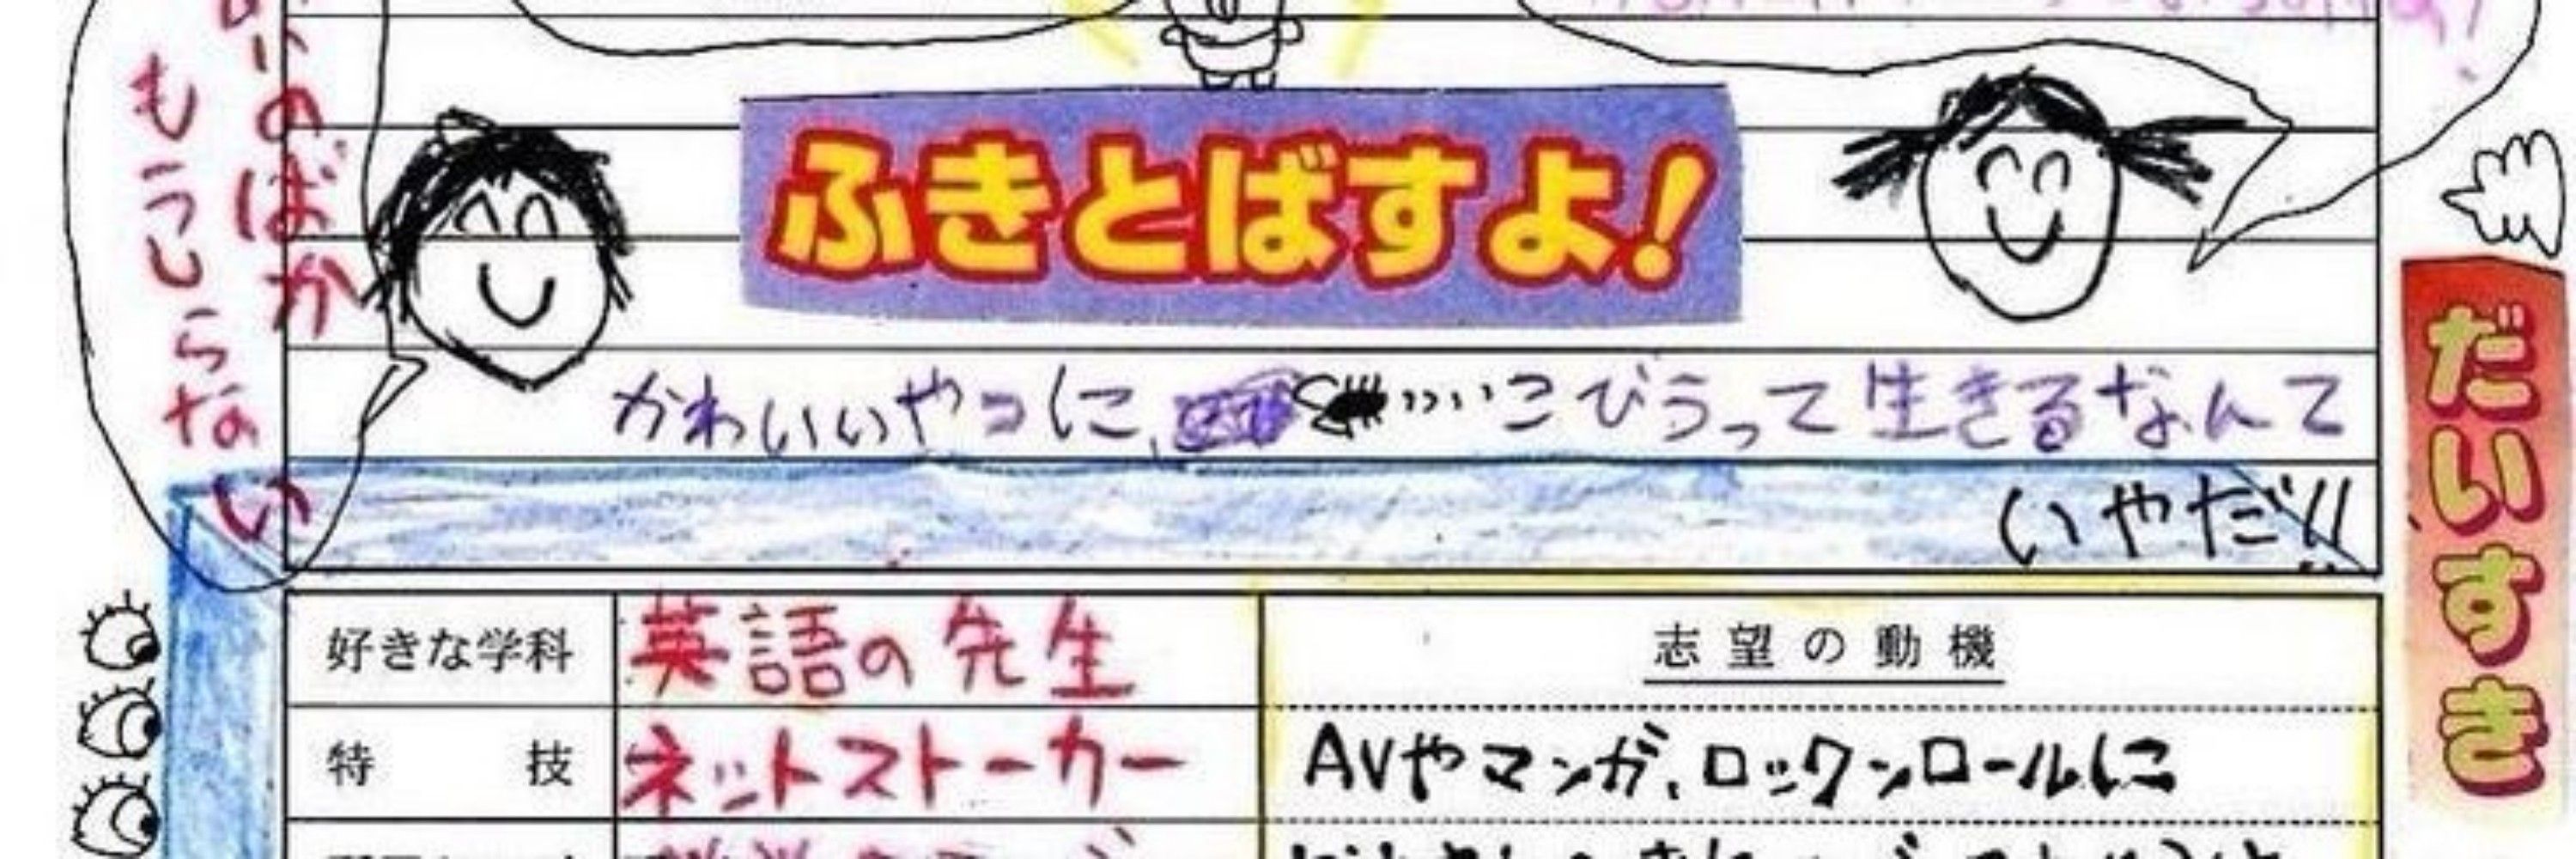 のばか
もうしらない
ふきとばすよ!
かわいいやつに、こびうって生きるなんて
いやだ!!
だいすき
好きな学科 英語の先生
志望の動機
特技 ネットストーカー
AVやマンガ、ロックンロールに